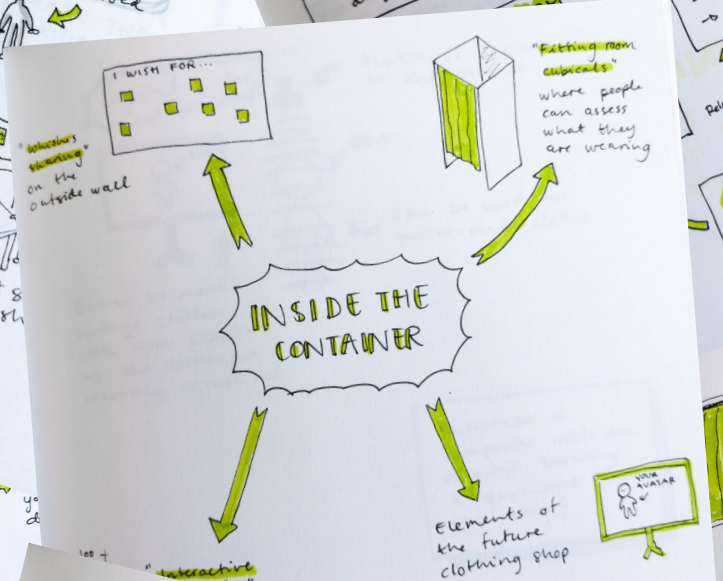 I WISH FOR...
"Wishes
sharing"
on the
outside wall
"Fitting room
cubicals"
where people
can assess
what they
are wearing
INSIDE THE
CONTAINER
YOUR
AVATAR
Elements of
the future
clothing shop
"Interactive